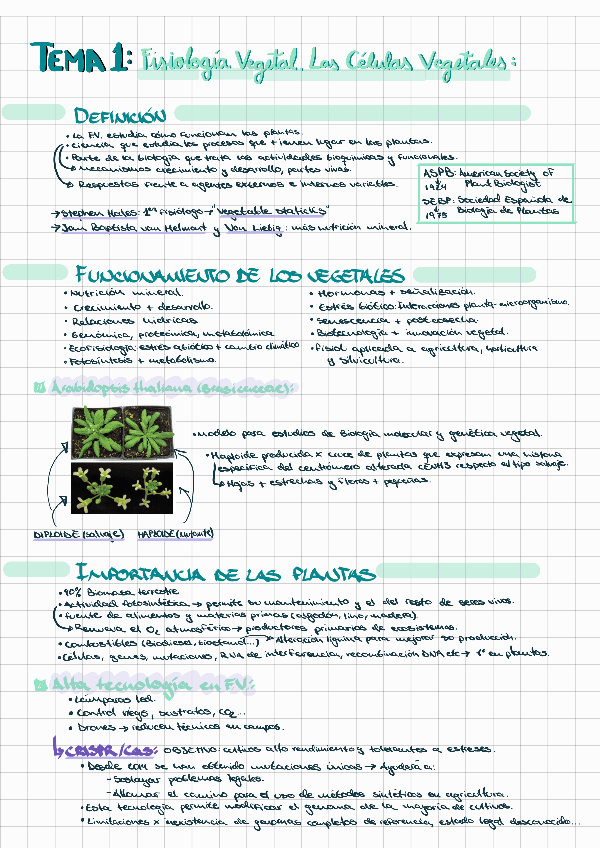 TEMA 1: Fisiología Vegetal. Las Células Vegetales:
DEFINICIÓN
• La FV. estudia cómo funcionan las plantas.
• Ciencia que estudia los procesos que tienen lugar en las plantas.
• Parte de la biología que trata las actividades bioquímicas y funcionales.
↳ Mecanismos crecimiento y desarrollo, partes vivas.
↳ Respuestas frente a agentes externos e internos variables.
ASPB: American Society of
1924 Plant Biologist
SEBP: Sociedad Española de
1975 Biología de Plantas
→ Stephen Hales: 1er fisiólogo → "Vegetable staticks"
→ Jam Baptista van Helmont y Van Liebig: más nutrición mineral.
FUNCIONAMIENTO DE LOS VEGETALES
• Nutrición mineral.
• Crecimiento + desarrollo.
• Relaciones hídricas
• Genómica, proteómica, metabolómica
• Ecofisiología: estrés abiótico + cambio climático
• Fotosíntesis + metabolismo.
• Hormonas + señalización.
• Estrés biótico: Interacciones planta-microorganismo.
• Senescencia + postcosecha.
• Biotecnología + innovación vegetal.
• Fisiol aplicada a agricultura, horticultura
y silvicultura.
Arabidopsis thaliana (Brasicaceae):
• Modelo para estudios de Biología molecular y genética vegetal.
• Haploide producida x cruce de plantas que expresan una histona
específica del centrómero alterada CENH3 respecto al tipo salvaje.
↳ Hojas + estrechas y flores + pequeñas.
DIPLOIDE (salvaje) HAPLOIDE (mutante)
IMPORTANCIA DE LAS PLANTAS
• 90% Biomasa terrestre
• Actividad fotosintética → permite su mantenimiento y el del resto de seres vivos.
• Fuente de alimentos y materias primas (algodón, lino, madera)
↳ Renueva el O2 atmosférico → productores primarios de ecosistemas.
• Combustibles (Biodiesel, bioetanol...) → Alteración lignina para mejorar su producción.
• Células, genes, mutaciones, RNA de interferencia, recombinación DNA etc → 1º en plantas.
Alta tecnología en FV:
• Lámparas led.
• Control riego, sustratos, CO2...
• Drones → reducen técnicos en campos.
↳ CRISPR/Cas: OBJETIVO: cultivos alto rendimiento y tolerantes a estreses.
• Desde 2014 se han obtenido mutaciones únicas → Ayudará a:
- Soslayar problemas legales.
- Allanar el camino para el uso de métodos sintéticos en agricultura.
• Esta tecnología permite modificar el genoma de la mayoría de cultivos.
• Limitaciones × inexistencia de genomas completos de referencia, estado legal desconocido...